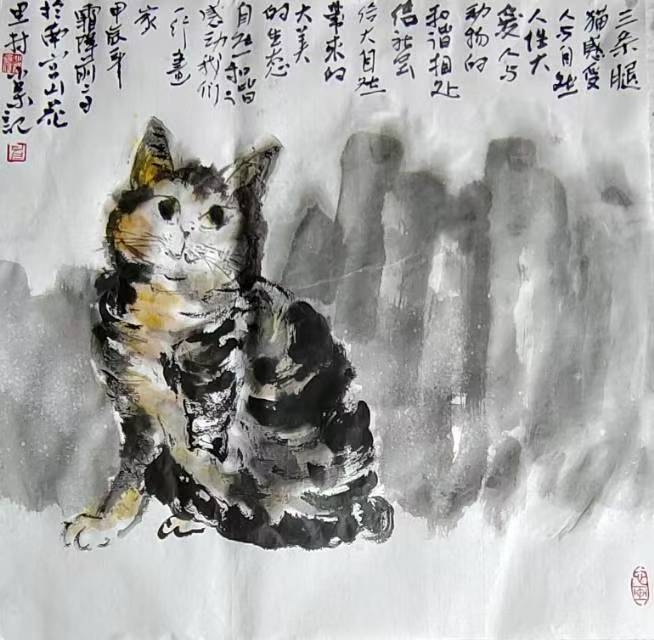 三条腿
猫感受
人与自然
人性大
爱人与
动物的
和谐相处
给社会
给大自然
带来的
大美
的生态
自然和谐之
感动我们
一行畫
家
甲辰年
霜降前
於南宫山花
里村 記